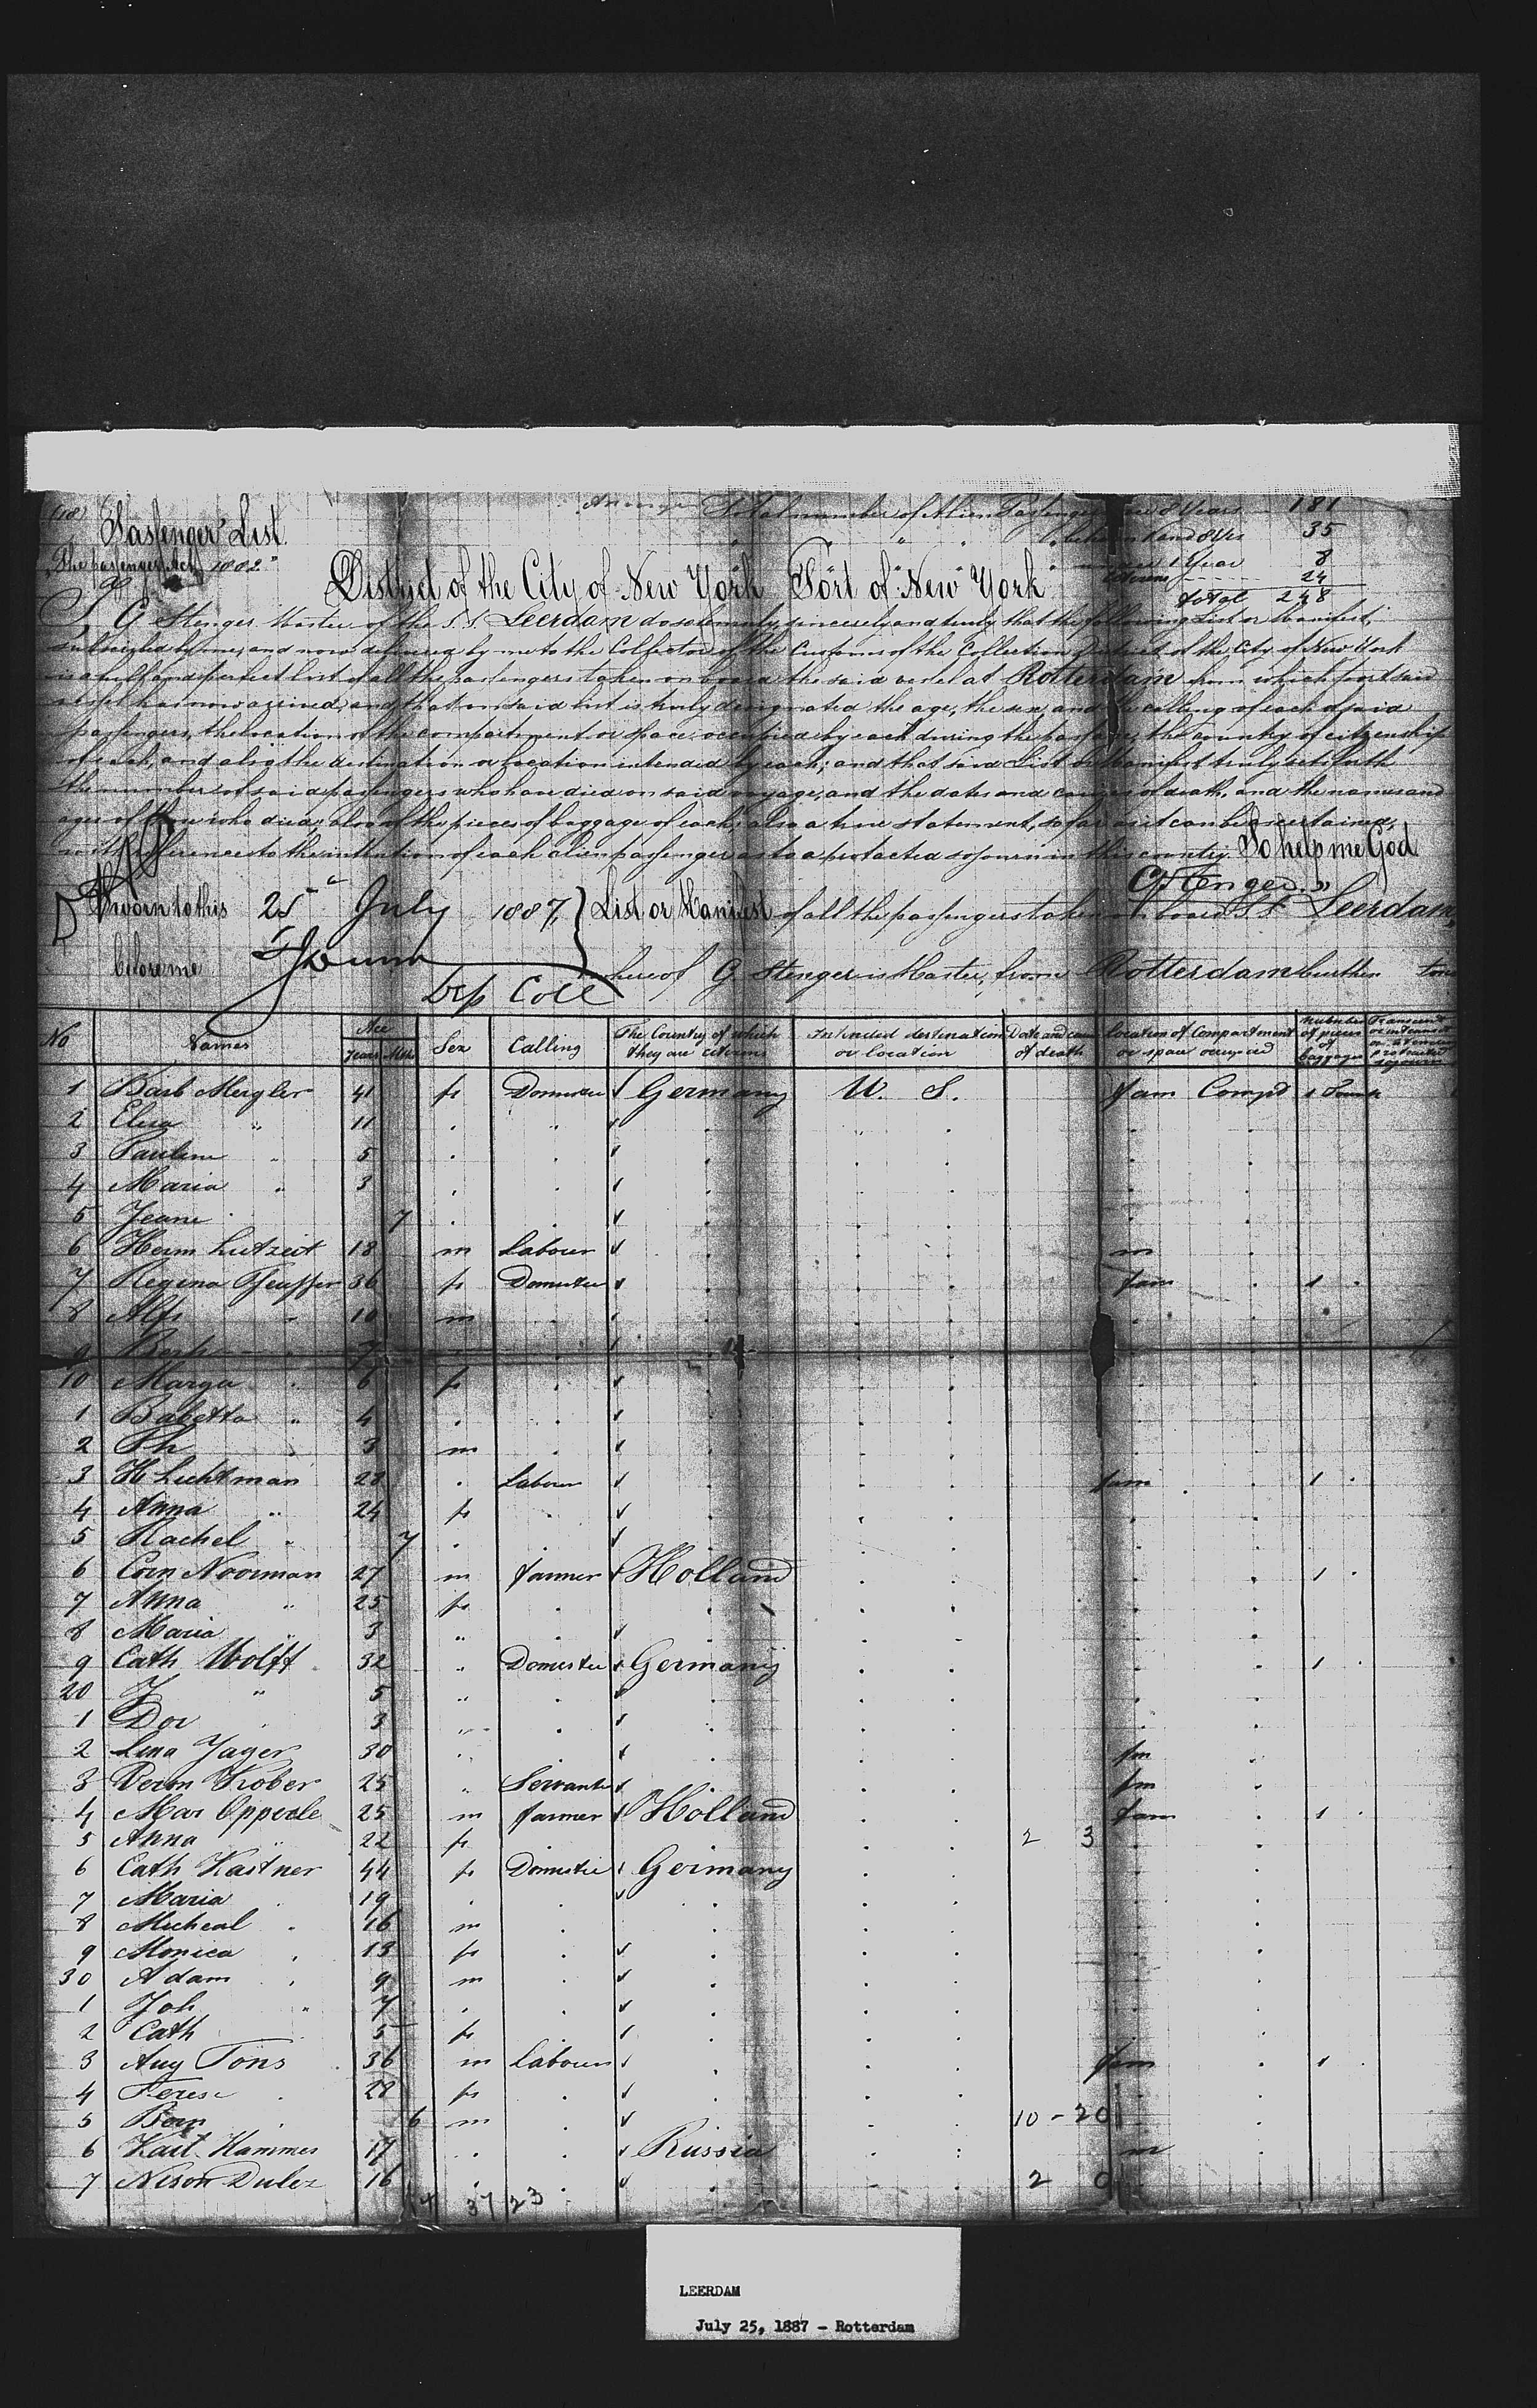 Passenger List
The passenger Act 1882
Total number of Alien Passengers 8 Years 181
35
1 Year 8
24
total 248
District of the City of New York Port of New York
I, G Stenger Master of the S.S Leerdam do solemnly, sincerely and truly that the following List or Manifest,
subscribed by me, and now delivered by me to the Collector of the Customs of the Collection District of the City of New York
is a full and perfect list of all the passengers taken on board the said vessel at Rotterdam from which port said
vessel has now arrived, and that on said list is truly designated the age, the sex, and the calling of each of said
passengers, the location of the compartment or space occupied by each during the passage, the country of citizenship
of each, and also the destination or location intended by each; and that said List or Manifest truly sets forth
the number of said passengers who have died on said voyage, and the dates and causes of death, and the names and
ages of those who died, also of the pieces of baggage of each, also a true statement, so far as it can be ascertained,
with reference to the intention of each alien passenger as to a protracted sojourn in this country. So help me God
G Stenger
Sworn to this 25 July 1887 List or Manifest of all the passengers taken on board S.S Leerdam
before me whereof G Stenger is Master, from Rotterdam burthen tons
Dep Coll
No Names Age Years Mths Sex Calling The Country of which they are citizens Intended destination or location Date and cause of death Location of Compartment or space occupied Number of pieces of baggage
1 Barb Meigler 41 f Domestic Germany U. S. fam Compd 1
2 Elisa " 11
3 Pauline " 5
4 Maria " 3
5 Jeane 7
6 Herm Lutzeit 18 m Labour m
7 Regina Pfeuffer 36 f Domestic fam 1
8 Alfr " 10 m
9 7
10 Marga 6 f
1 Babetta " 4
2 Ph 3 m
3 H Lichtman 28 Labour fam 1
4 Anna " 24 f
5 Rachel " 7
6 Corn Noorman 27 m farmer Holland 1
7 Anna " 25 f
8 Maria " 3 "
9 Cath Wolff 32 " Domestic Germany 1
20 J " 5 "
1 Dor 3 "
2 Lina Jager 30 " fm
3 Kober 25 " Servant fm
4 Mar Opperle 25 m farmer Holland fam 1
5 Anna " 22 f 2 3
6 Cath Kastner 44 f Domestic Germany
7 Maria 19
8 Micheal 16 m
9 Monica 13 f
30 Adam 9 m
1 Joh " 7
2 Cath 5 f
3 Aug Tons 36 m Labour fam 1
4 Terese 28 f
5 6 m 10 - 20
6 Karl Hammer 17 Russia m
7 Nison Dulez 16 2 0
37 23
LEERDAM
July 25, 1887 - Rotterdam